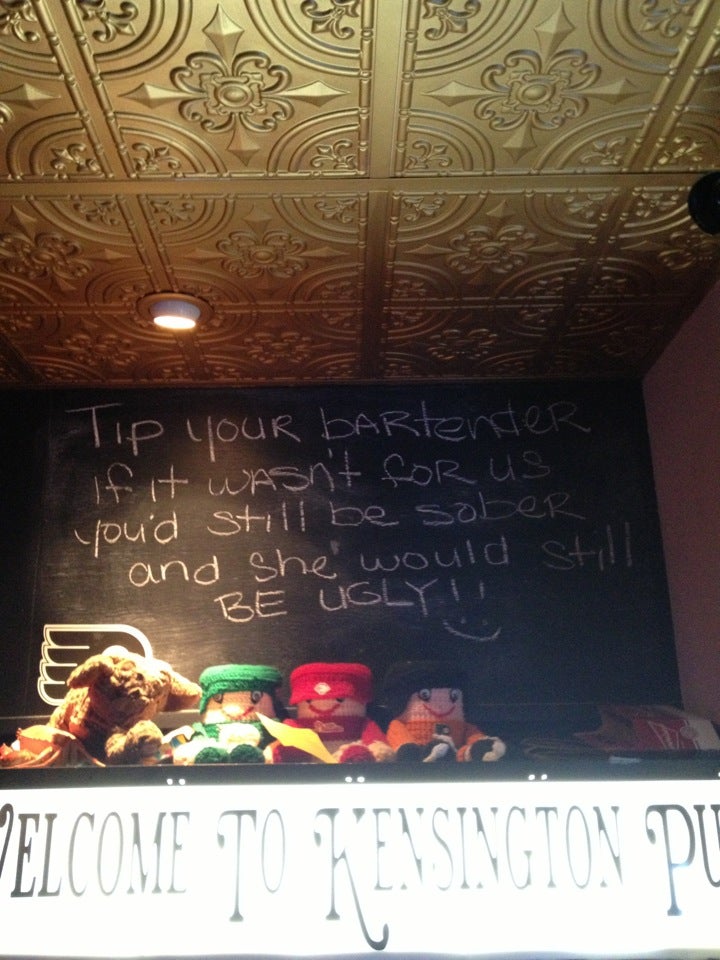 TIP YOUR BARTENDER
IF IT WASN'T FOR US
you'd still be sober
and she would still
BE UGLY!!
WELCOME TO KENSINGTON PU